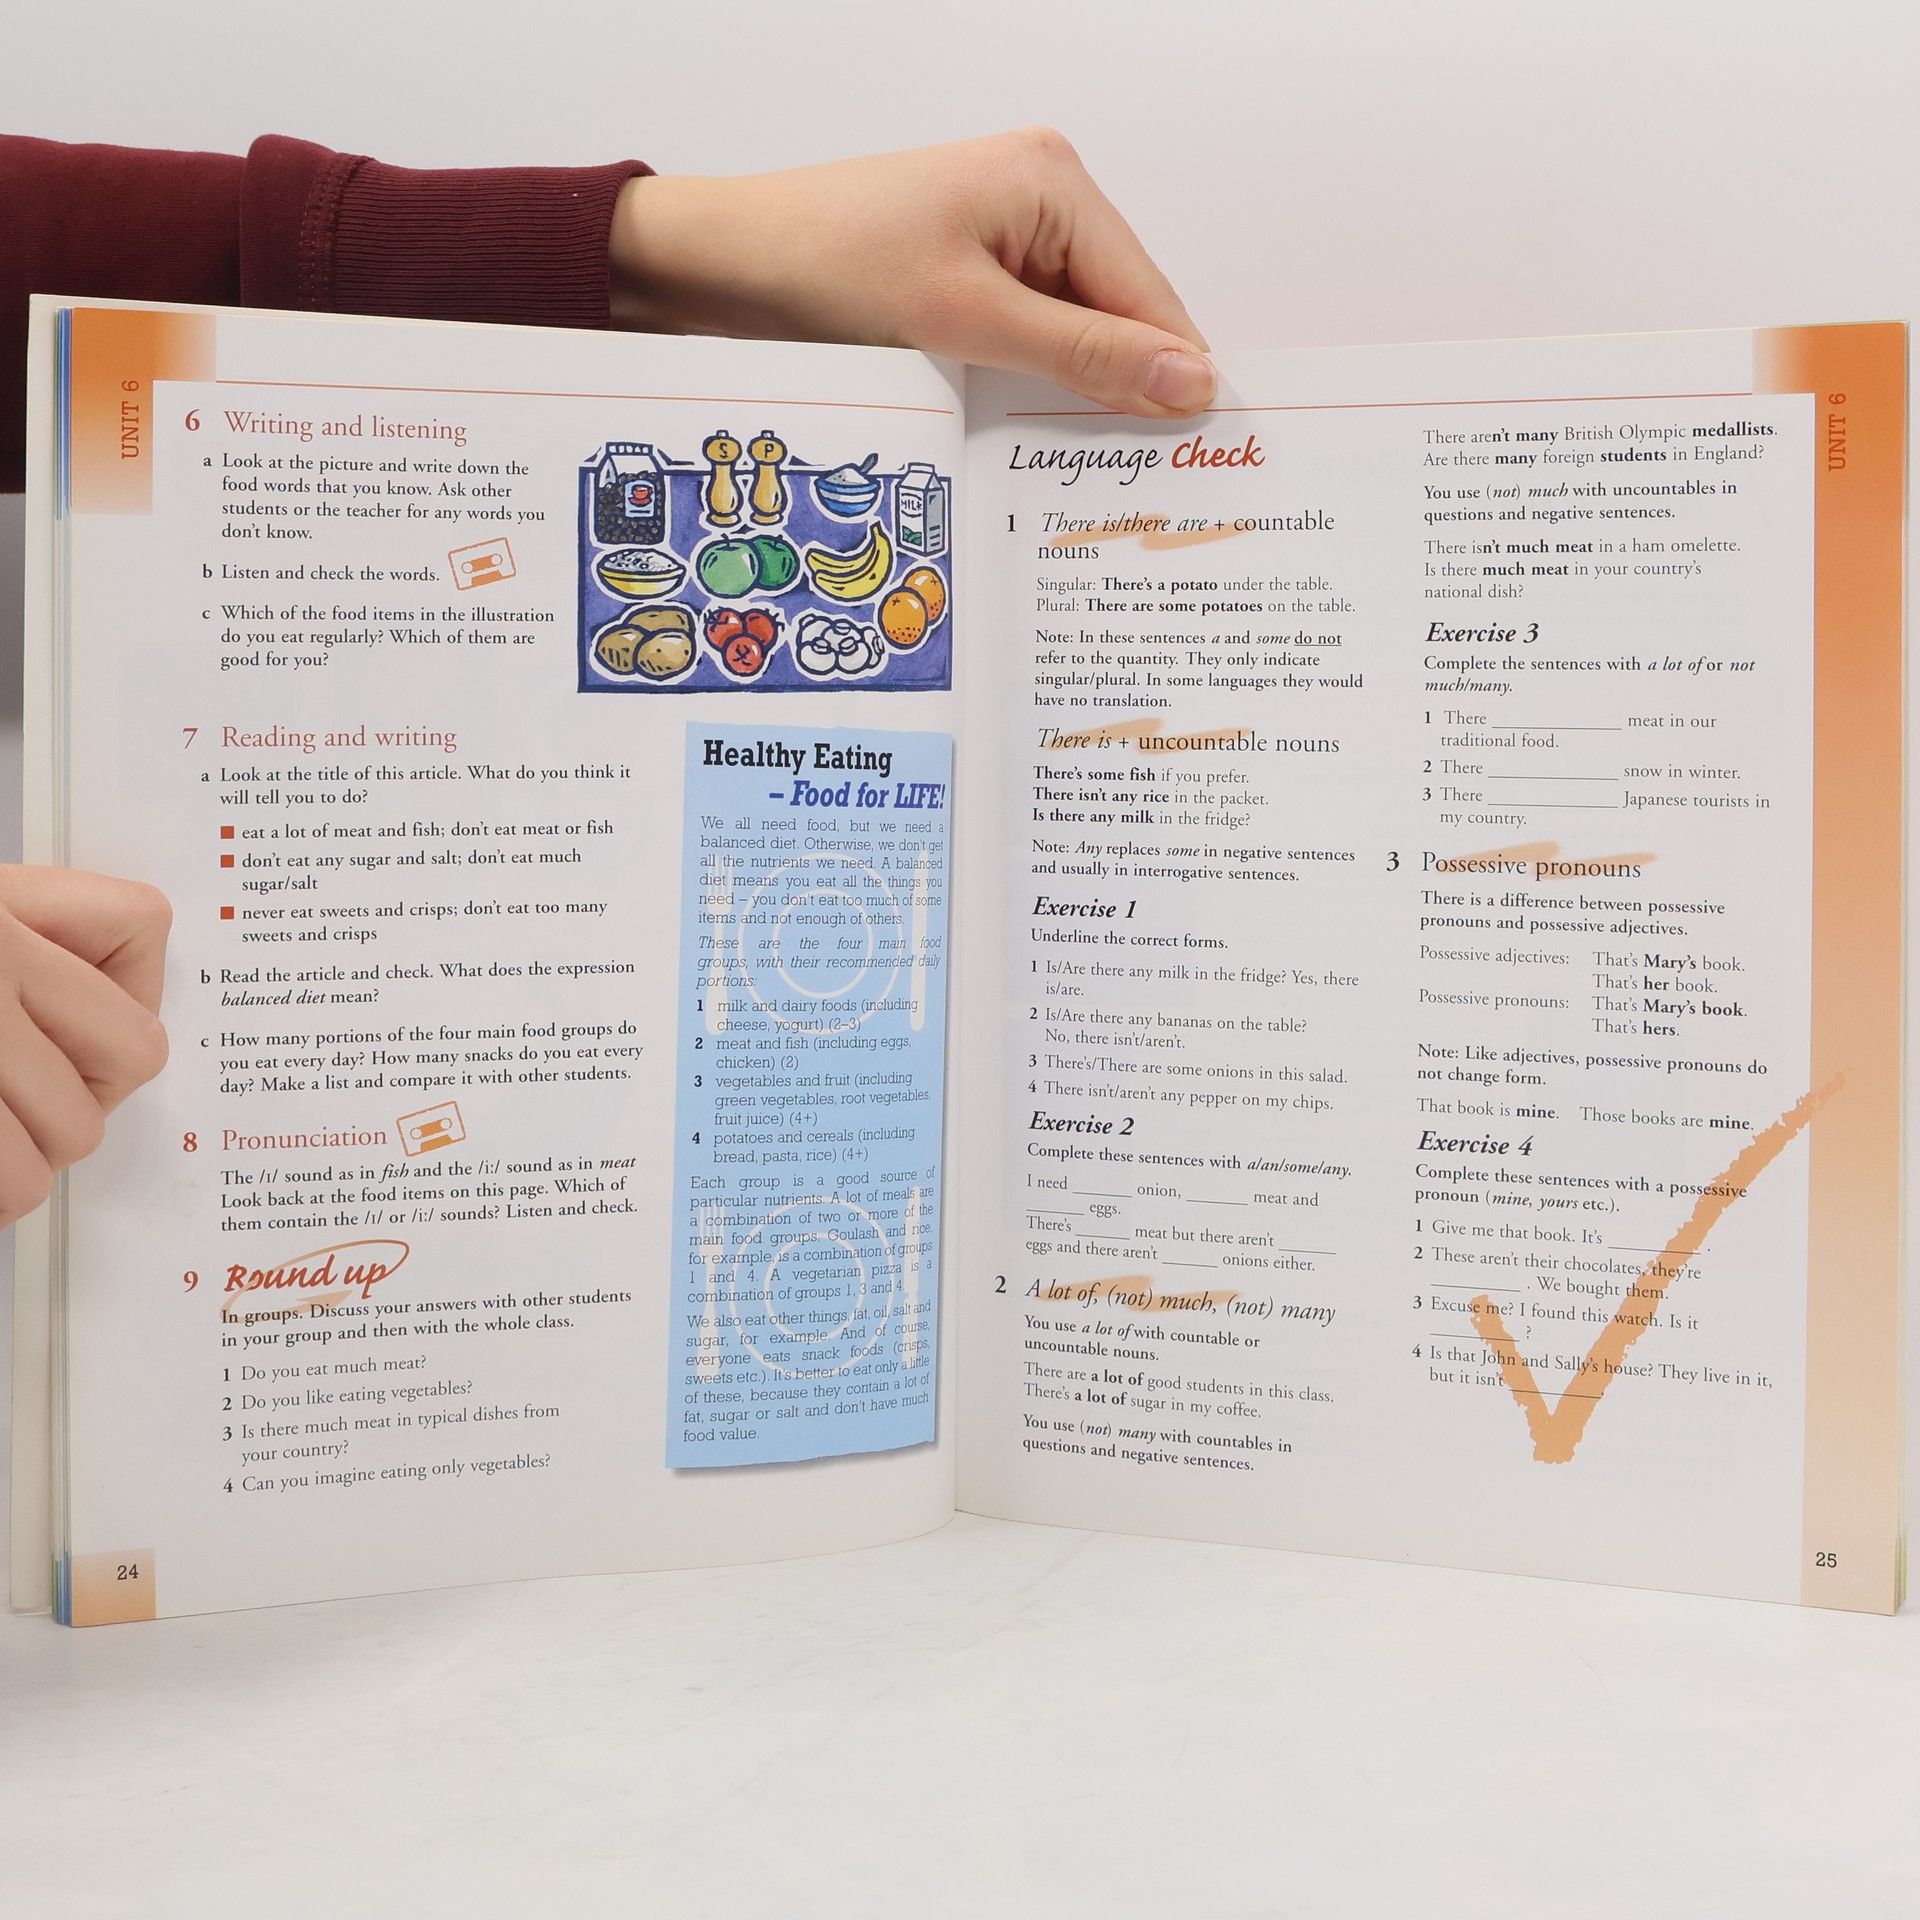 UNIT 6
6 Writing and listening
a Look at the picture and write down the
food words that you know. Ask other
students or the teacher for any words you
don't know.
b Listen and check the words.
c Which of the food items in the illustration
do you eat regularly? Which of them are
good for you?
S P
MILK
7 Reading and writing
a Look at the title of this article. What do you think it
will tell you to do?
eat a lot of meat and fish; don't eat meat or fish
don't eat any sugar and salt; don't eat much
sugar/salt
never eat sweets and crisps; don't eat too many
sweets and crisps
b Read the article and check. What does the expression
balanced diet mean?
c How many portions of the four main food groups do
you eat every day? How many snacks do you eat every
day? Make a list and compare it with other students.
8 Pronunciation
The /ɪ/ sound as in fish and the /i:/ sound as in meat
Look back at the food items on this page. Which of
them contain the /ɪ/ or /i:/ sounds? Listen and check.
9 Round up
In groups. Discuss your answers with other students
in your group and then with the whole class.
1 Do you eat much meat?
2 Do you like eating vegetables?
3 Is there much meat in typical dishes from
your country?
4 Can you imagine eating only vegetables?
24
Healthy Eating
– Food for LIFE!
We all need food, but we need a
balanced diet. Otherwise, we don't get
all the nutrients we need. A balanced
diet means you eat all the things you
need – you don't eat too much of some
items and not enough of others.
These are the four main food
groups, with their recommended daily
portions:
1 milk and dairy foods (including
cheese, yogurt) (2–3)
2 meat and fish (including eggs,
chicken) (2)
3 vegetables and fruit (including
green vegetables, root vegetables,
fruit juice) (4+)
4 potatoes and cereals (including
bread, pasta, rice) (4+)
Each group is a good source of
particular nutrients. A lot of meals are
a combination of two or more of the
main food groups. Goulash and rice,
for example, is a combination of groups
1 and 4. A vegetarian pizza is a
combination of groups 1, 3 and 4.
We also eat other things, fat, oil, salt and
sugar, for example. And of course,
everyone eats snack foods (crisps,
sweets etc.). It's better to eat only a little
of these, because they contain a lot of
fat, sugar or salt and don't have much
food value.
Language Check
1 There is/there are + countable
nouns
Singular: There's a potato under the table.
Plural: There are some potatoes on the table.
Note: In these sentences a and some do not
refer to the quantity. They only indicate
singular/plural. In some languages they would
have no translation.
There is + uncountable nouns
There's some fish if you prefer.
There isn't any rice in the packet.
Is there any milk in the fridge?
Note: Any replaces some in negative sentences
and usually in interrogative sentences.
Exercise 1
Underline the correct forms.
1 Is/Are there any milk in the fridge? Yes, there
is/are.
2 Is/Are there any bananas on the table?
No, there isn't/aren't.
3 There's/There are some onions in this salad.
4 There isn't/aren't any pepper on my chips.
Exercise 2
Complete these sentences with a/an/some/any.
I need ______ onion, ______ meat and
______ eggs.
There's ______ meat but there aren't ______
eggs and there aren't ______ onions either.
2 A lot of, (not) much, (not) many
You use a lot of with countable or
uncountable nouns.
There are a lot of good students in this class.
There's a lot of sugar in my coffee.
You use (not) many with countables in
questions and negative sentences.
There aren't many British Olympic medallists.
Are there many foreign students in England?
You use (not) much with uncountables in
questions and negative sentences.
There isn't much meat in a ham omelette.
Is there much meat in your country's
national dish?
Exercise 3
Complete the sentences with a lot of or not
much/many.
1 There ______________ meat in our
traditional food.
2 There ______________ snow in winter.
3 There ______________ Japanese tourists in
my country.
3 Possessive pronouns
There is a difference between possessive
pronouns and possessive adjectives.
Possessive adjectives: That's Mary's book.
That's her book.
Possessive pronouns: That's Mary's book.
That's hers.
Note: Like adjectives, possessive pronouns do
not change form.
That book is mine. Those books are mine.
Exercise 4
Complete these sentences with a possessive
pronoun (mine, yours etc.).
1 Give me that book. It's __________ .
2 These aren't their chocolates, they're
__________ . We bought them.
3 Excuse me? I found this watch. Is it
__________ ?
4 Is that John and Sally's house? They live in it,
but it isn't __________.
UNIT 6
25